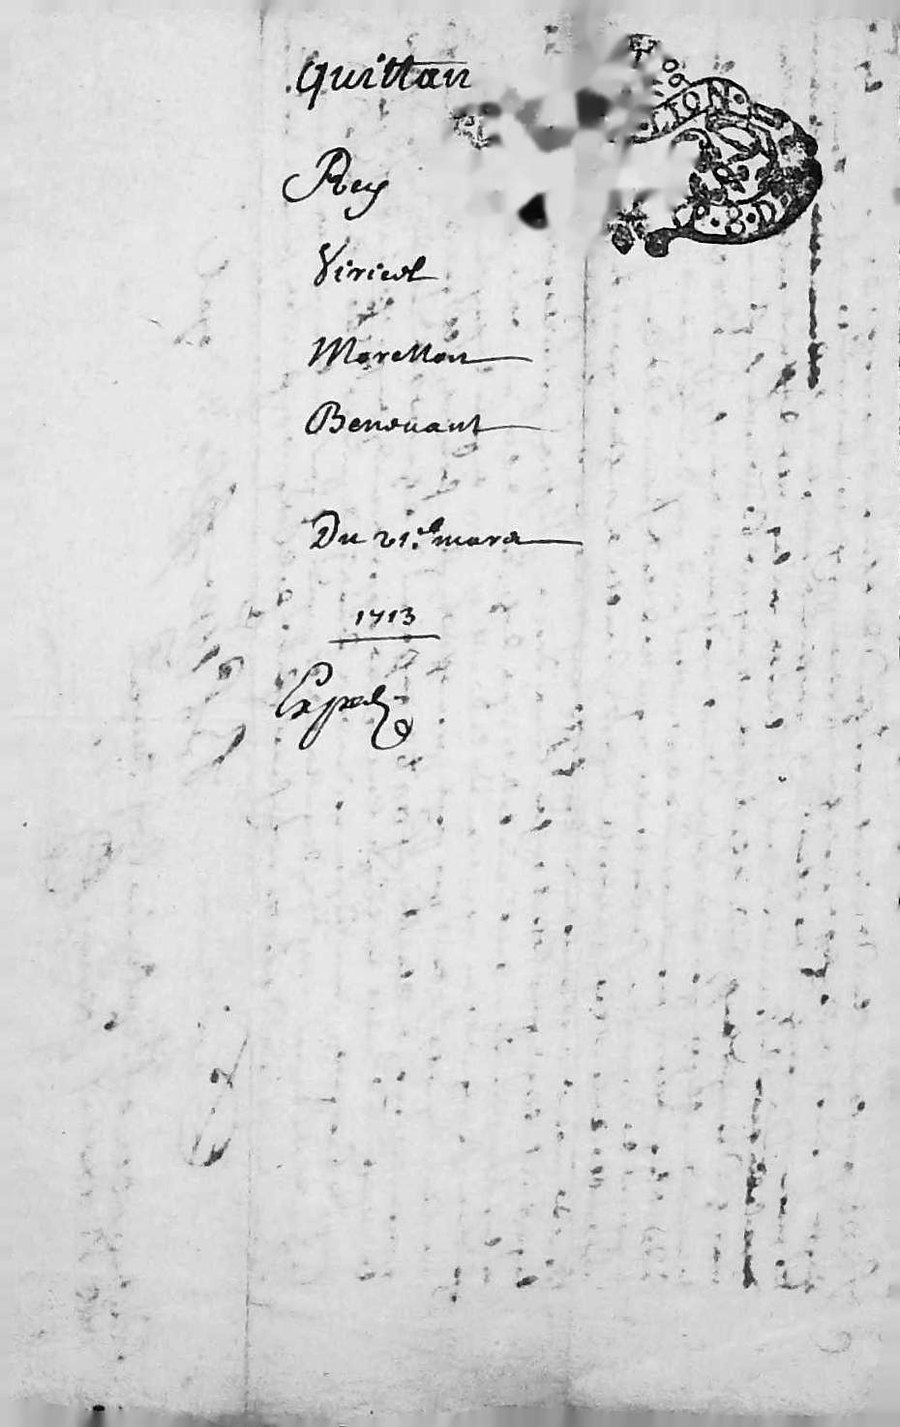 Quittan
LION
Rey
8 D
Viricel
Moretton
Benouant
Du 21.e mars
1713
Exped